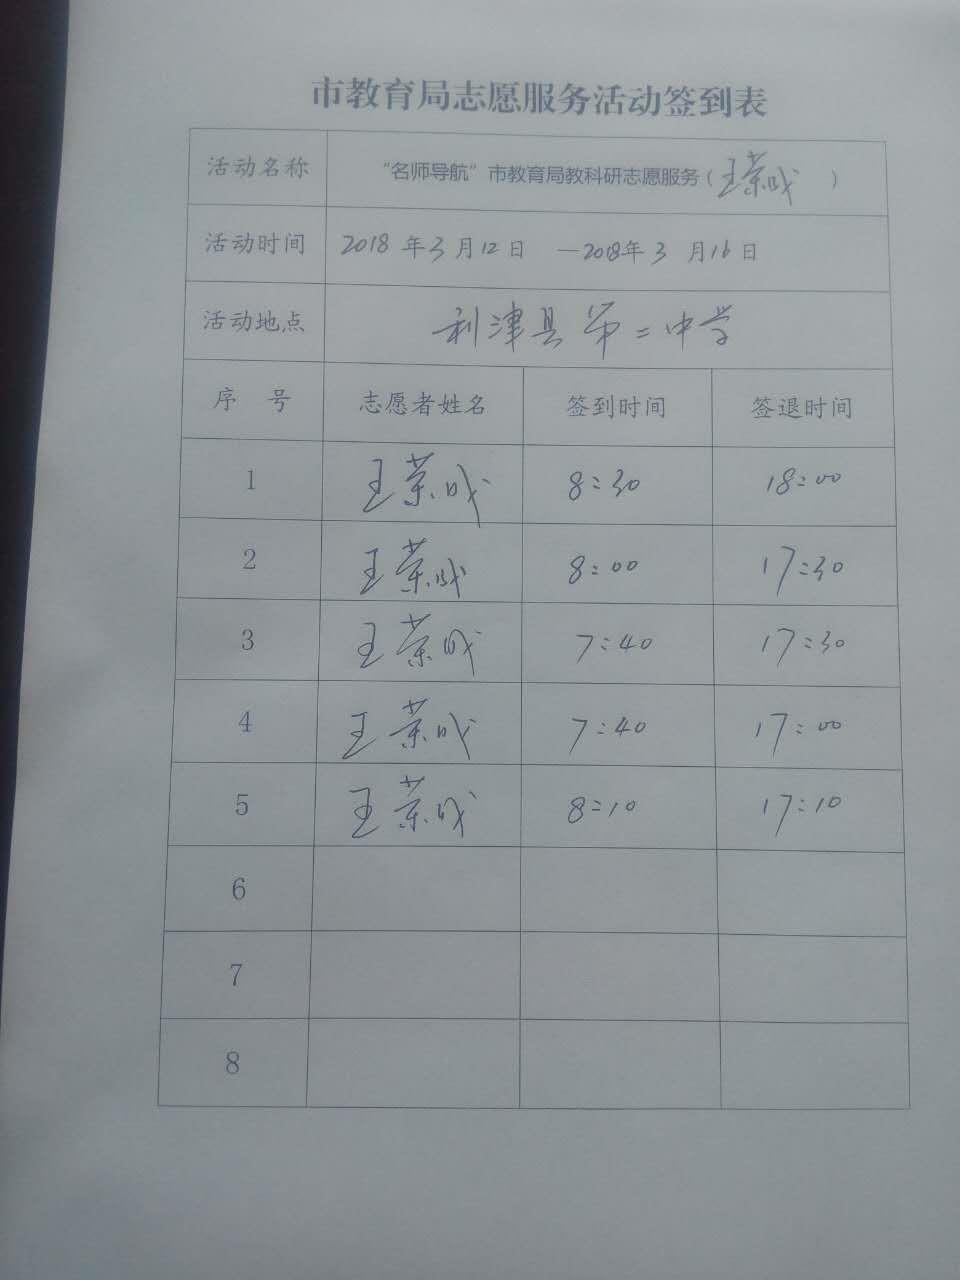 市教育局志愿服务活动签到表
活动名称 “名师导航”市教育局教科研志愿服务（王荣成 ）
活动时间 2018年3月12日 —2018年3月16日
活动地点 利津县第二中学
序 号 志愿者姓名 签到时间 签退时间
1 王荣成 8:30 18:00
2 王荣成 8:00 17:30
3 王荣成 7:40 17:30
4 王荣成 7:40 17:00
5 王荣成 8:10 17:10
6
7
8